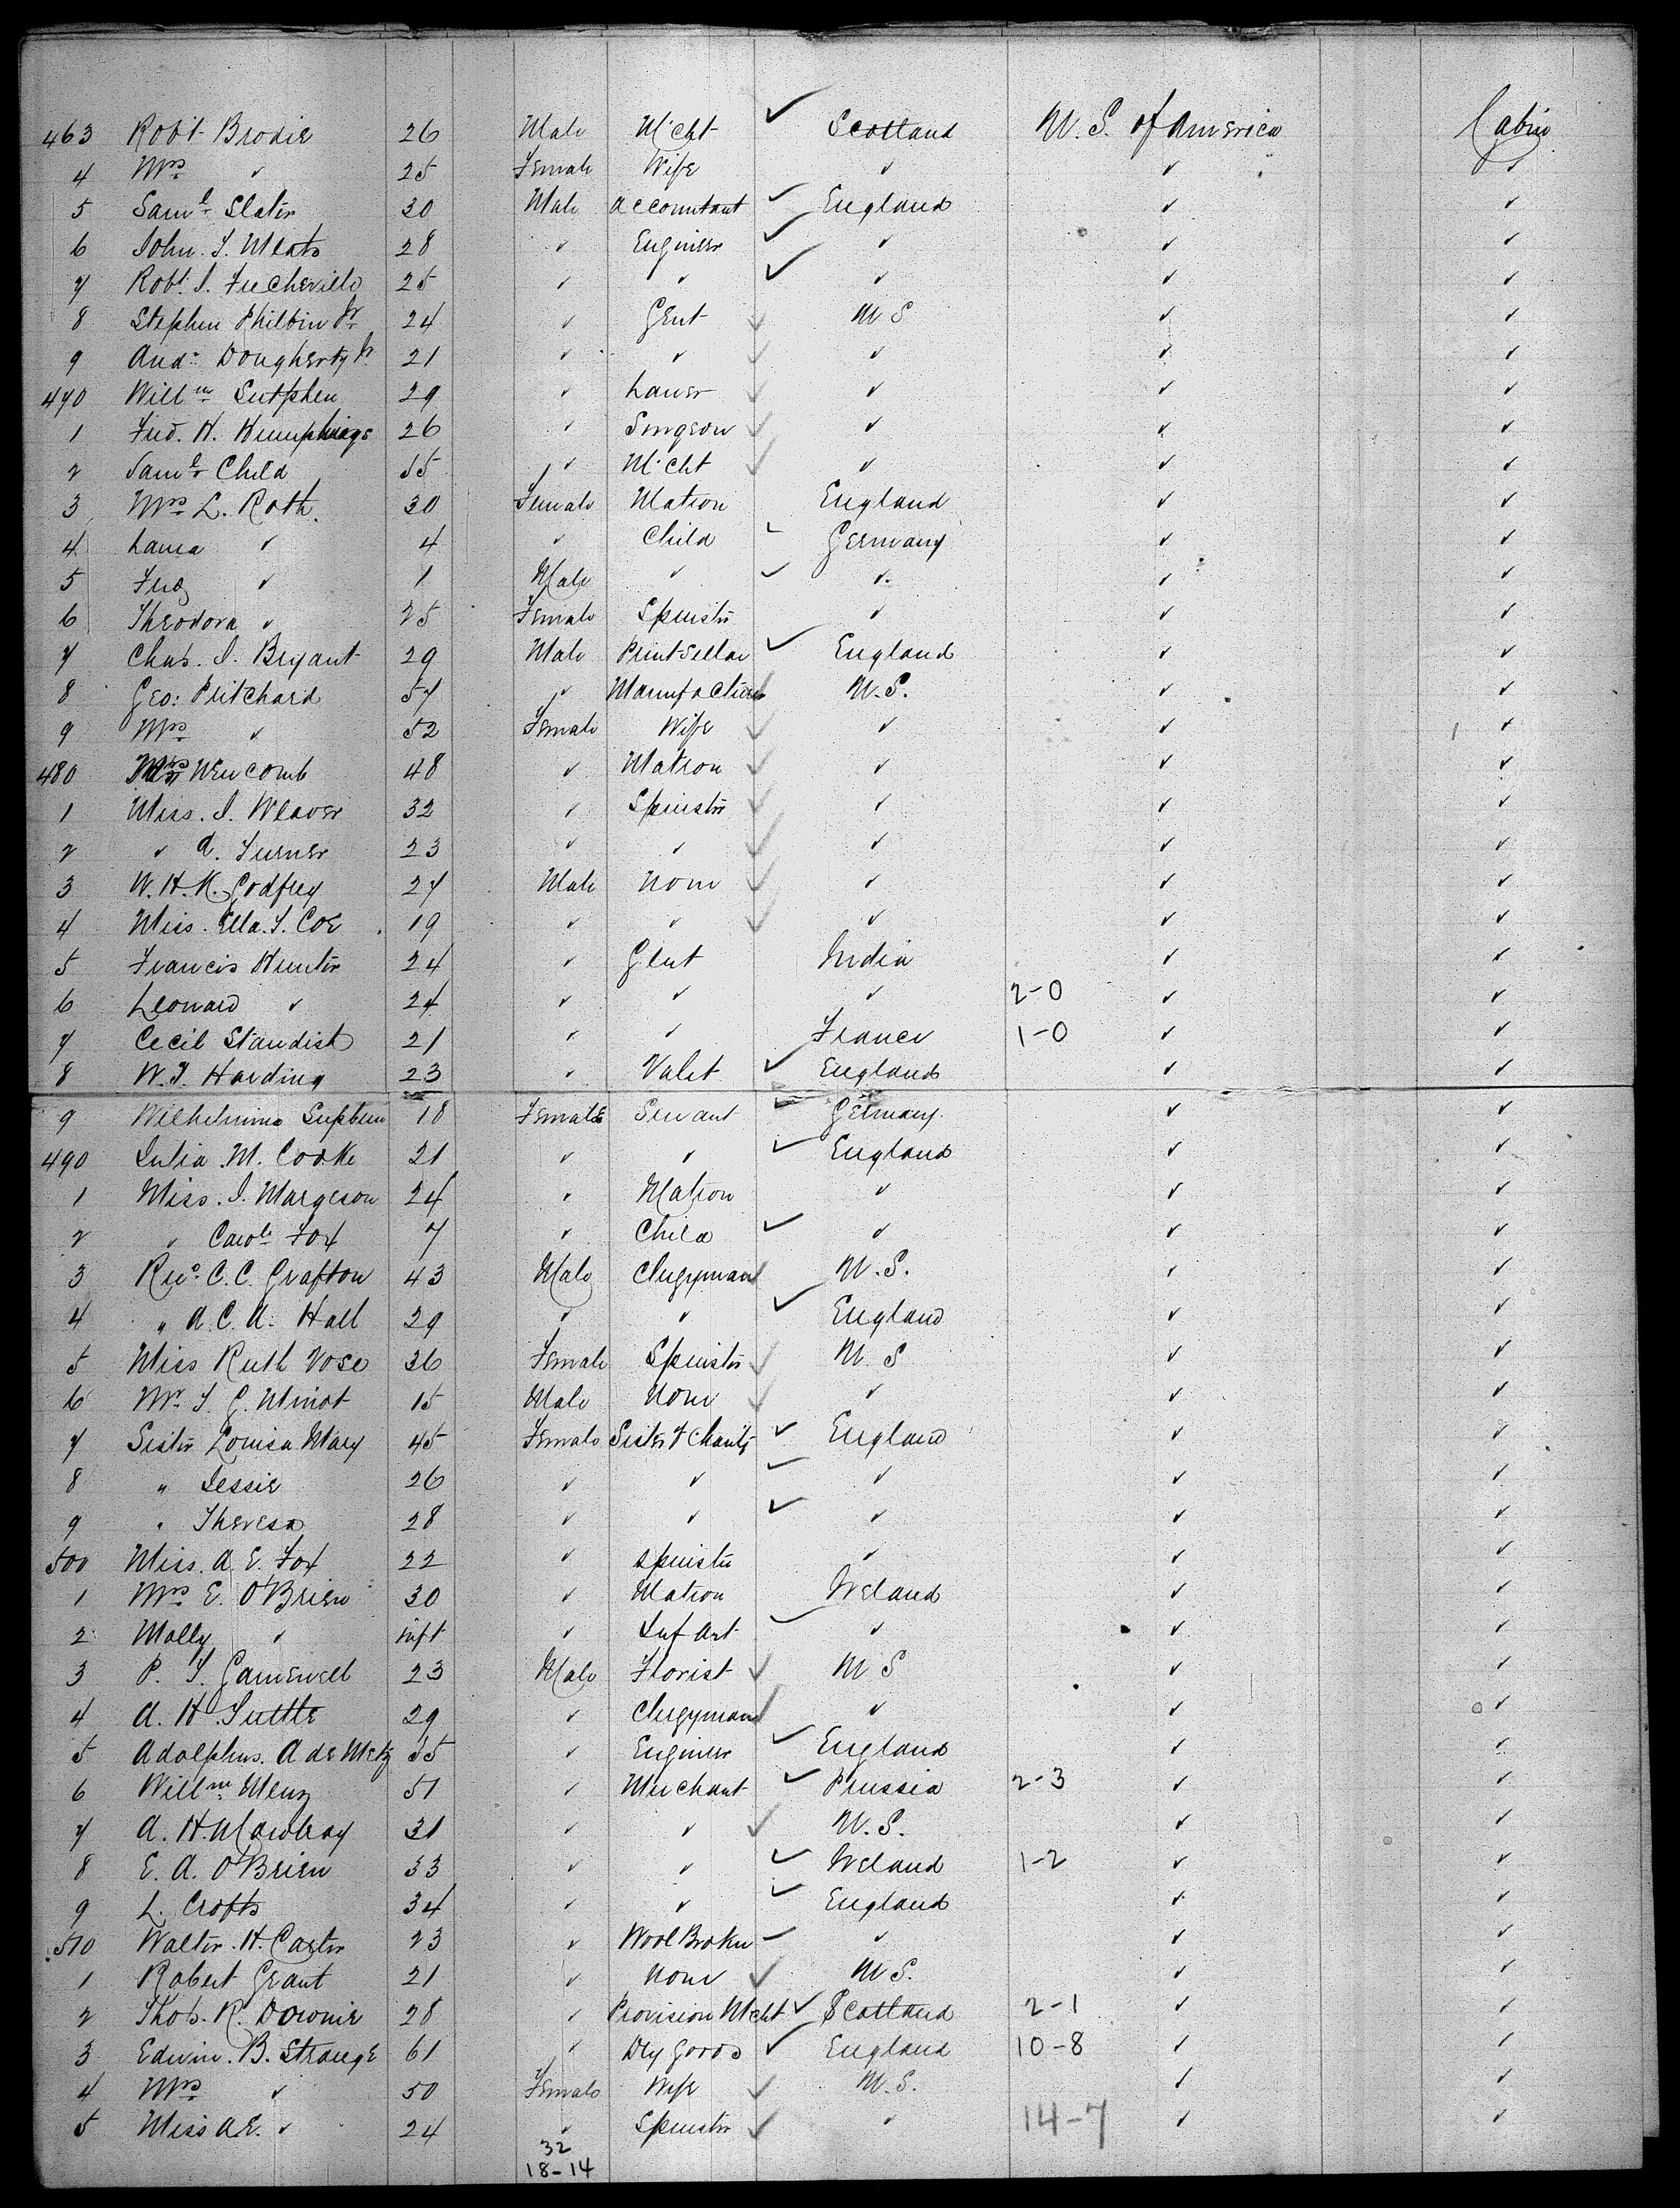 463 Robt Brodie 26 Male Mcht ✓ Scotland U.S. of America Cabin
4 Mrs ✓ 25 Female Wife ✓ ✓ ✓
5 Saml Slater 30 Male Accountant ✓ England ✓ ✓
6 John. T. Meats 28 ✓ Engineer ✓ ✓ ✓ ✓
7 Robt. J. 25 ✓ ✓ ✓ ✓ ✓ ✓
8 Stephen Philbin Jr 24 ✓ Gent ✓ U S ✓ ✓
9 And: Dougherty Jr 21 ✓ ✓ ✓ ✓ ✓ ✓
470 Willm Sutphen 29 ✓ ✓ ✓ ✓ ✓
1 Fred. H. Humphreys 26 ✓ Surgeon ✓ ✓ ✓ ✓
2 Saml Child 55 ✓ Mcht ✓ ✓ ✓ ✓
3 Mrs L. Roth 30 Female Matron England ✓ ✓
4 Laura ✓ 4 ✓ Child ✓ Germany ✓ ✓
5 ✓ 1 Male ✓ ✓ ✓ ✓ ✓
6 Theodora ✓ 25 Female Spinster ✓ ✓ ✓
7 Chas. J. Bryant 29 Male Print Seller ✓ England ✓ ✓
8 Geo: Pritchard 57 ✓ Manufacturer ✓ U.S. ✓ ✓
9 Mrs ✓ 52 Female Wife ✓ ✓ ✓ ✓
480 Mrs Newcomb 48 ✓ Matron ✓ ✓ ✓ ✓
1 Miss. J. Weaver 32 ✓ Spinster ✓ ✓ ✓ ✓
2 ✓ A. Turner 23 ✓ ✓ ✓ ✓ ✓ ✓
3 W. H. K. Godfrey 27 Male None ✓ ✓ ✓ ✓
4 Miss. Ella. T. Coe 19 ✓ ✓ ✓ ✓ ✓ ✓
5 Francis Hunter 24 ✓ Gent India ✓ ✓
6 Leonard ✓ 24 ✓ ✓ ✓ 2-0 ✓ ✓
7 Cecil Standish 21 ✓ ✓ France 1-0 ✓ ✓
8 W. J. Harding 23 ✓ Valet ✓ England ✓ ✓
9 Wilhelmina 18 Female Servant ✓ Germany. ✓ ✓
490 Julia M. Cooke 21 ✓ ✓ ✓ England ✓ ✓
1 Miss. J. Margeson 24 ✓ Matron ✓ ✓ ✓
2 " Carole Fox 7 ✓ Child ✓ ✓ ✓ ✓
3 Revd. C. C. Grafton 43 Male Clergyman ✓ U.S. ✓ ✓
4 " A. C. A. Hall 29 ✓ ✓ ✓ England ✓ ✓
5 Miss Ruth Vose 36 Female Spinster ✓ U. S ✓ ✓
6 Mr. J. G. Minot 15 Male None ✓ ✓ ✓ ✓
7 Sister Louisa Mary 45 Female Sister of Charity ✓ England ✓ ✓
8 " Jessie 26 ✓ ✓ ✓ ✓ ✓ ✓
9 " Theresa 28 ✓ ✓ ✓ ✓ ✓ ✓
500 Miss. A. E. Fox 22 ✓ Spinster ✓ ✓ ✓
1 Mrs E. O'Brien 30 ✓ Matron Ireland ✓ ✓
2 Molly ✓ inft ✓ Infant ✓ ✓ ✓ ✓
3 P. T. Gamewell 23 Male Florist ✓ U S ✓ ✓
4 A. H. Tuttle 29 ✓ Clergyman ✓ ✓ ✓ ✓
5 Adolphus. A de Metz 35 ✓ Engineer ✓ England ✓ ✓
6 Willm. Menz 51 ✓ Merchant ✓ Prussia 2-3 ✓ ✓
7 A. H. Mowbray 31 ✓ ✓ ✓ U.S. ✓ ✓
8 E. A. O'Brien 33 ✓ ✓ ✓ Ireland 1-2 ✓ ✓
9 L. Crofts 34 ✓ ✓ ✓ England ✓ ✓
510 Walter. H. Carter 23 ✓ Wool Broker ✓ ✓ ✓ ✓
1 Robert Grant 21 ✓ None ✓ U S. ✓ ✓
2 Thos. R. Downie 28 ✓ Provision Mcht ✓ Scotland 2-1 ✓ ✓
3 Edwin. B. Strange 61 ✓ Dry Goods ✓ England 10-8 ✓ ✓
4 Mrs ✓ 50 Female Wife ✓ U.S. ✓ ✓
5 Miss A.E. ✓ 24 ✓ Spinster ✓ ✓ 14-7 ✓ ✓
32
18-14